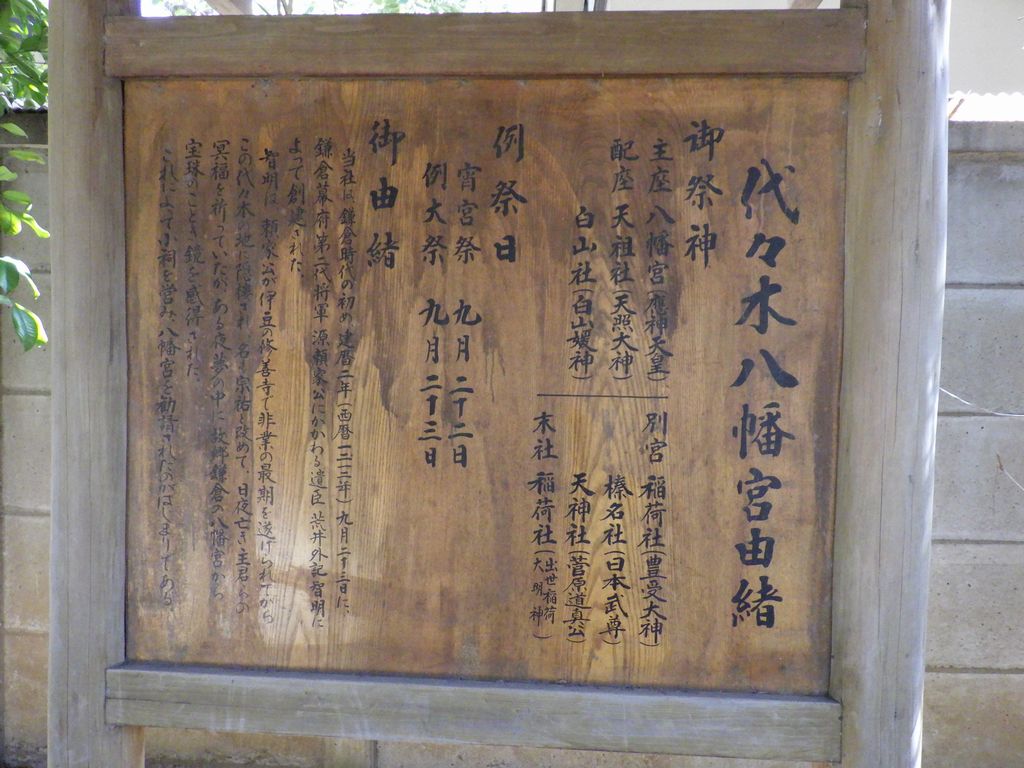 代々木八幡宮由緒
御祭神
主座 八幡宮(應神天皇)
配座 天祖社(天照大神)
白山社(白山媛神)
別宮 稲荷社(豊受大神)
榛名社(日本武尊)
天神社(菅原道真公)
末社 稲荷社(出世稲荷大明神)
例祭日
宵宮祭 九月二十二日
例大祭 九月二十三日
御由緒
当社は、鎌倉時代の初め、建暦二年(西暦一二一二年)九月二十三日に、
鎌倉幕府第二代将軍 源頼家公にかかわる遺臣 荒井外記智明に
よって創建された。
智明は、頼家公が伊豆の修善寺で非業の最期を遂げられてから
この代々木の地に隠棲され、名も宗祐と改めて、日夜亡き主君の
冥福を祈っていたが、ある夜夢の中に故郷鎌倉の八幡宮から
宝珠のごとき鏡を感得された。
これによって小祠を営み、八幡宮を勧請されたのがはじまりである。